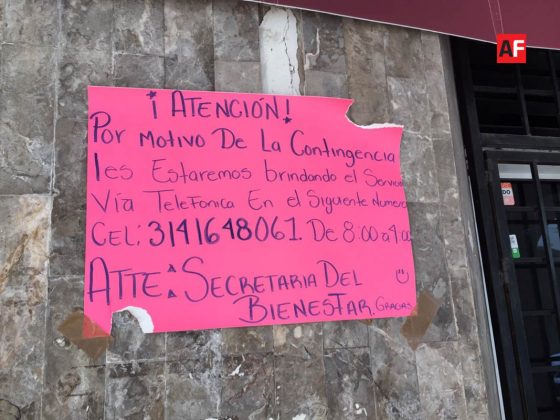 AF
¡ATENCIÓN!
Por motivo De La Contingencia
les Estaremos brindando el Servicio
Vía Telefonica En el Siguiente Numero
CEL: 3141648061. De 8:00 a 4:00
ATTE: SECRETARIA DEL
BIENESTAR. GRACIAS